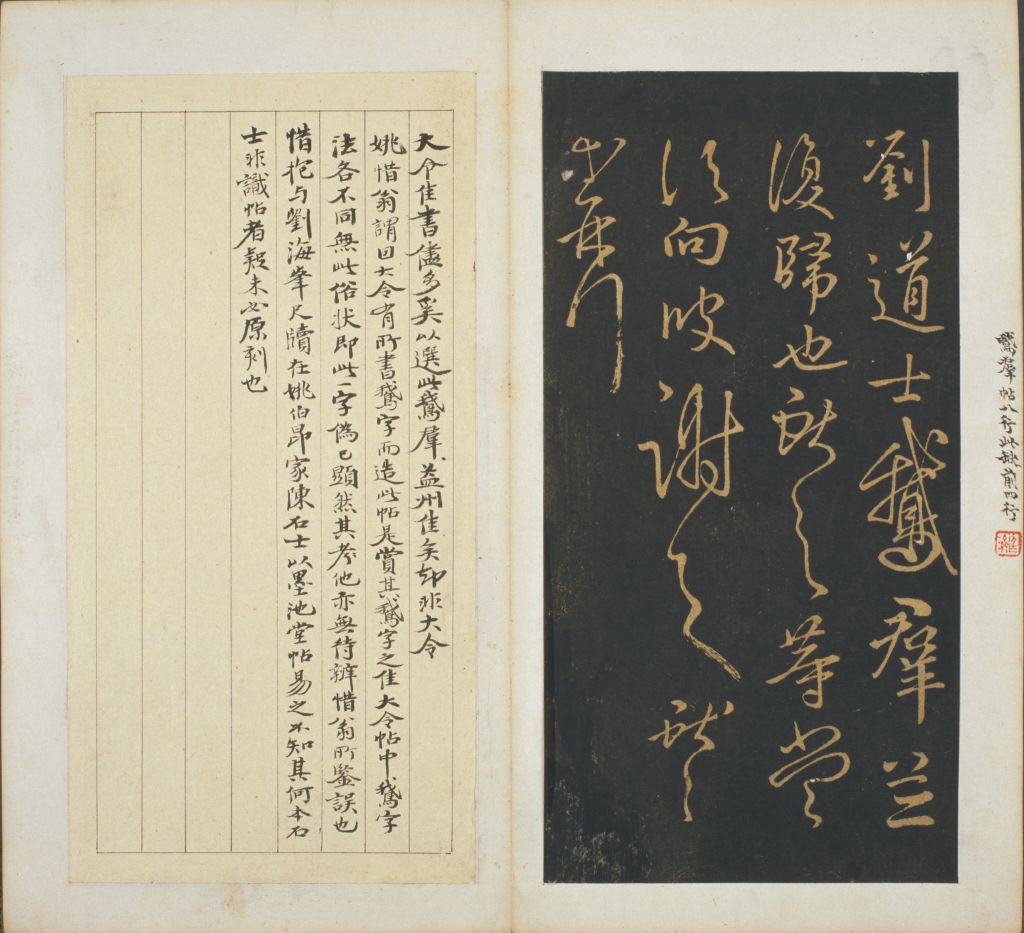 鵞羣帖八行此缺前四行
劉道士鵞羣並
復歸也獻之等當
須向彼謝之獻之
等再拜
大令佳書儘多奚以選此鵞羣益州佳矣却非大令
姚惜翁謂因大令有所書鵞字而造此帖是賞其鵞字之佳大令帖中鵞字
法各不同無此俗狀即此一字偽已顯然其考他亦無待辨惜翁所鑒誤也
惜抱与劉海峯尺牘在姚伯昂家陳石士以墨池堂帖易之不知其何本石
士非識帖者疑未必原刻也